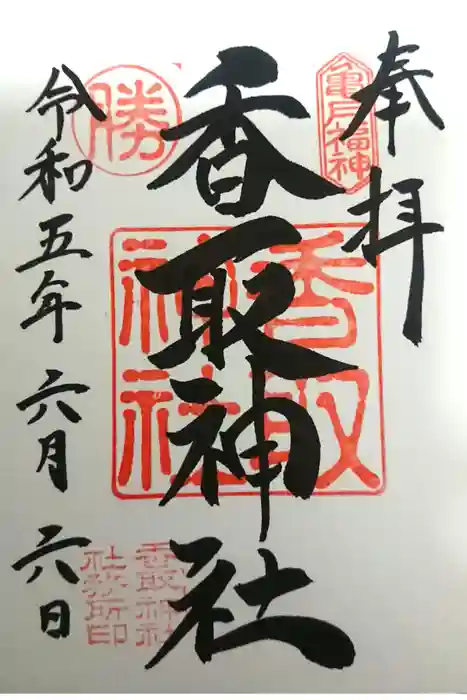 奉拝
亀戸福神
香取神社
香取
神社
勝
香取神社
社務所印
令和五年六月六日